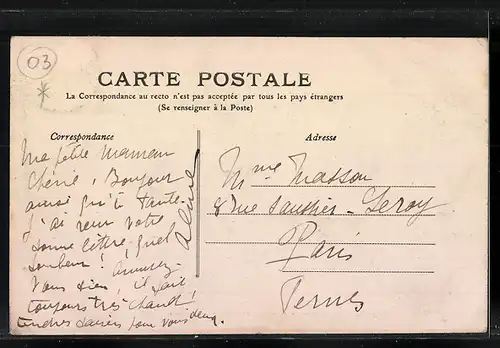 03
CARTE POSTALE
La Correspondance au recto n'est pas acceptée par tous les pays étrangers
(Se renseigner à la Poste)
Correspondance
Adresse
Ma petite Maman
Chérie, Bonjour
ainsi qu'à Tante.
J'ai reçu votre
bonne lettre, quel
bonheur! Amusez-
vous bien, il fait
toujours très chaud!
tendres baisers pour vous deux.
Aline
Mme Masson
8 Rue Gauthier-Leroy
Paris
Ternes